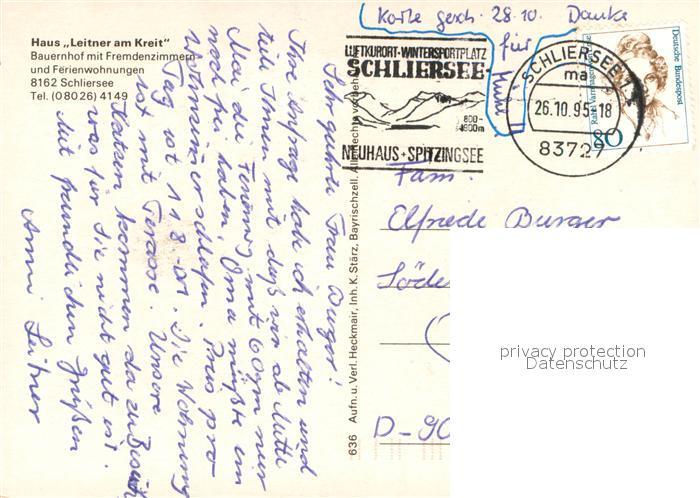 Karte gesch. 28.10. Danke
für
Haus „Leitner am Kreit"
Bauernhof mit Fremdenzimmern
und Ferienwohnungen
8162 Schliersee
Tel. (0 80 26) 41 49
LUFTKURORT·WINTERSPORTPLATZ
SCHLIERSEE
800-
1800m
NEUHAUS+SPITZINGSEE
SCHLIERSEE 1
ma
26.10.95-18
83727
Deutsche Bundespost
Rahel Varnhagen von Ense
80
Sehr geehrte Frau Burger!
Ihre Anfrage habe ich erhalten und
teile Ihnen mit daß wir ab Mitte
Mai die Ferienwg mit 60qm nur
noch frei haben. Oma müßte im
Wohnzimmer schlafen. Preis pro
Tag ist 118.- DM. Die Wohnung
ist mit Terasse. Unsere
Katzen kommen da zu Besuch
was für Sie nicht gut ist.
Mit freundlichen Grüßen
Anni Leitner
636 Aufn. u. Verl. Heckmair, Inh. K. Stärz, Bayrischzell. Alle Rechte vorbeh.
Fam.
Elfriede Burger
D-90
privacy protection
Datenschutz